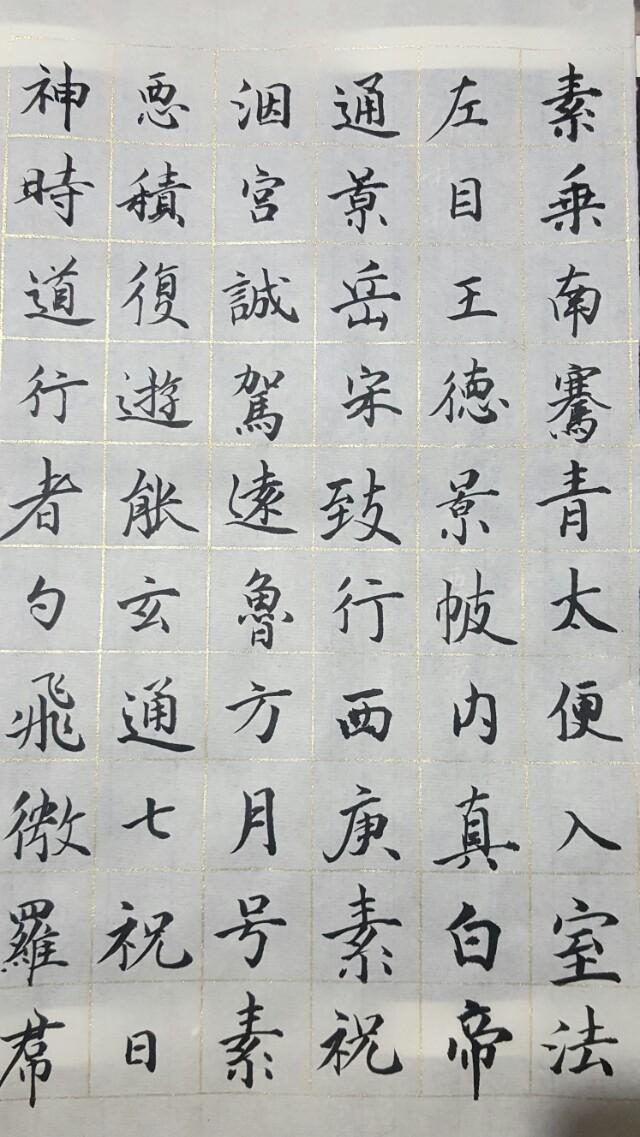 素乗南騫青太便入室法
左目王徳景帔内真白帝
通景岳宋致行西庚素祝
洇宮誠駕逺魯方月号素
悪積復遊能玄通七祝日
神時道行者勺飛微羅帬